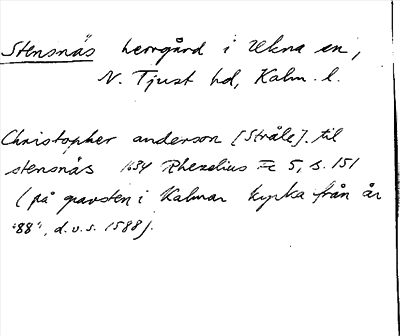 Stensnäs herrgård i Ukna sn,
N. Tjust hd, Kalm. l.
Christopher anderson [Stråle] til
stensnäs 1634 Rhezelius Fc 5, s. 151
(på gravsten i Kalmar kyrka från år
"88", d.v.s. 1588).